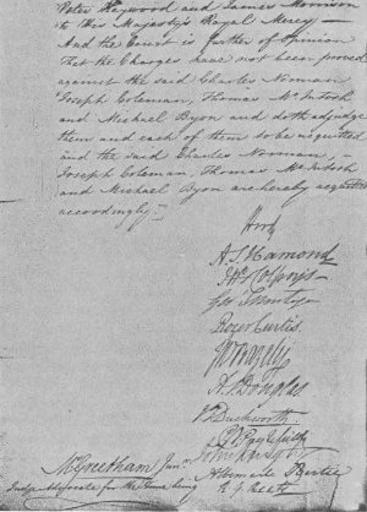 Peter Heywood and James Morrison
to His Majesty's Royal Mercy —
And the Court is further of Opinion
That the Charges have not been proved
against the said Charles Norman
Joseph Coleman, Thomas McIntosh
and Michael Byon and doth adjudge
them and each of them to be acquitted
and the said Charles Norman, —
Joseph Coleman, Thomas McIntosh
and Michael Byon are hereby acquitted
accordingly —
Hood
A.S. Hamond
J. Colpoys
Geo Montagu
Roger Curtis.
Jn Bazely
A.S. Douglas
J.T. Duckworth.
John Knight
Albemarle Bertie
R.G. Keats
M. Greetham Junr
Judge Advocate for the time being